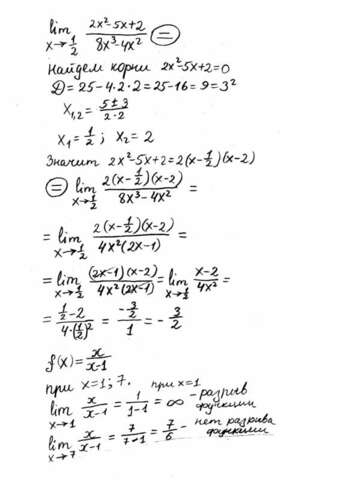 lim x→1/2 (2x²-5x+2)/(8x³-4x²) =
Найдем корни 2x²-5x+2=0
D=25-4·2·2=25-16=9=3²
x₁,₂ = (5±3)/(2·2)
x₁=1/2; x₂=2
Значит 2x²-5x+2=2(x-1/2)(x-2)
= lim x→1/2 2(x-1/2)(x-2)/(8x³-4x²) =
= lim x→1/2 2(x-1/2)(x-2)/(4x²(2x-1)) =
= lim x→1/2 (2x-1)(x-2)/(4x²(2x-1)) = lim x→1/2 (x-2)/(4x²) =
= (1/2-2)/(4·(1/2)²) = (-3/2)/1 = -3/2
f(x)=x/(x-1)
при x=1; 7. при x=1
lim x→1 x/(x-1) = 1/(1-1) = ∞ - разрыв функции
lim x→7 x/(x-1) = 7/(7-1) = 7/6 - нет разрыва функции